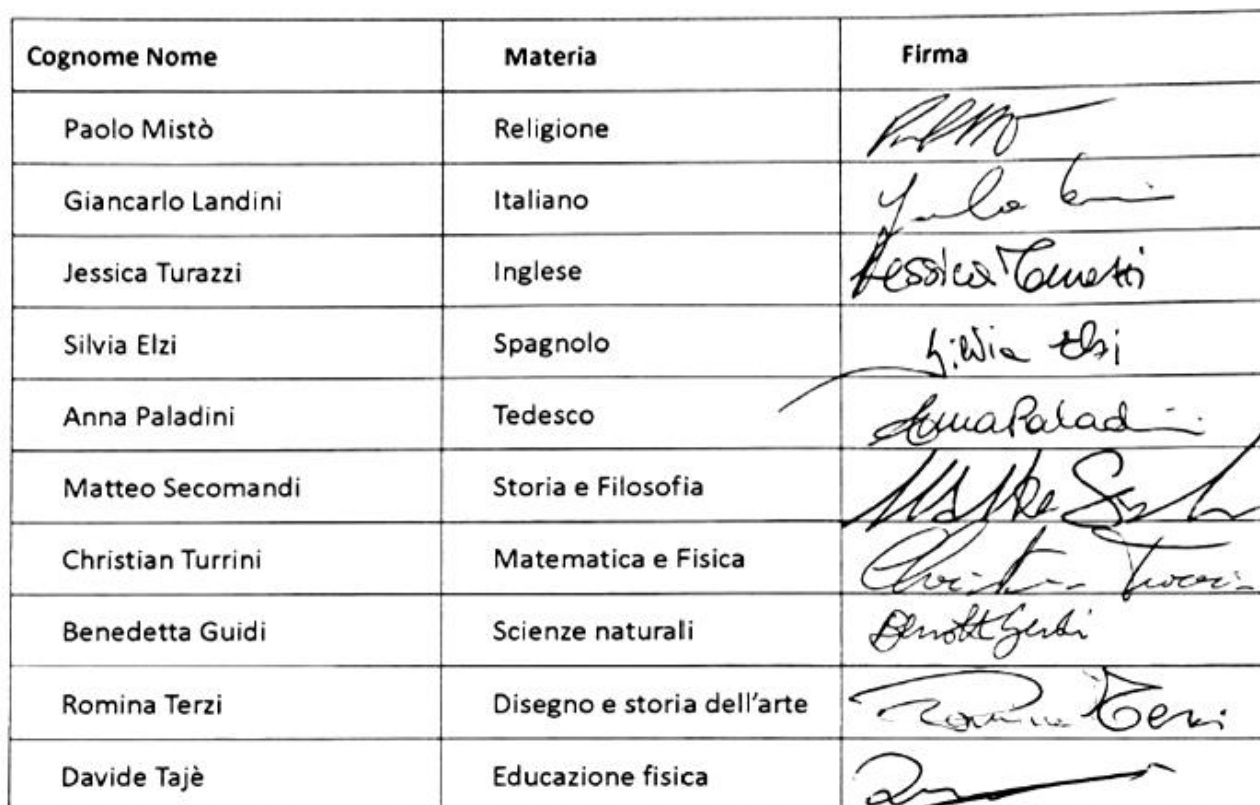 Cognome Nome Materia Firma
Paolo Mistò Religione
Giancarlo Landini Italiano
Jessica Turazzi Inglese Jessica
Silvia Elzi Spagnolo Silvia Elzi
Anna Paladini Tedesco Anna Paladini
Matteo Secomandi Storia e Filosofia
Christian Turrini Matematica e Fisica
Benedetta Guidi Scienze naturali
Romina Terzi Disegno e storia dell'arte Romina Terzi
Davide Tajè Educazione fisica